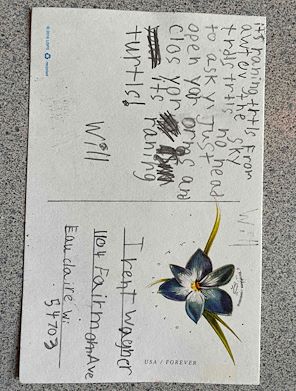 its raning trtls From
out ev the sky
trtls trtls no head
to ask y Just
open yor
clos yor its raning
turtls!
Will
Will
Trent Wagner
1104 Fairmont Ave
Eau claire Wi
54703
USA / FOREVER